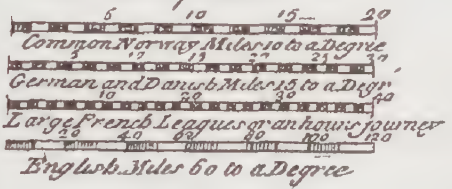 5 10 15 20
Common Norway Miles 10 to a Degree
5 10 15 20 25 30
German and Danish Miles 15 to a Degr.
10 20 30 40
Large French Leagues or an hours journey
20 40 60 80 100 120
English Miles 60 to a Degree